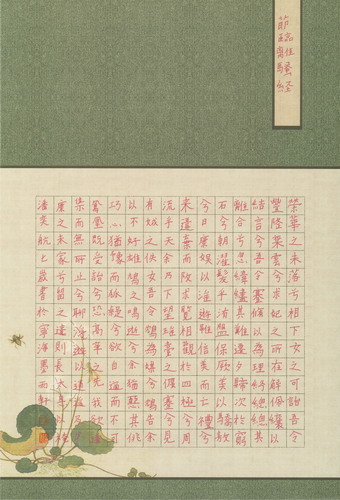 榮華之未落兮相下女之可詒吾令
豐隆乘雲兮求宓妃之所在解佩纕以
結言兮吾令蹇修以為理紛總總其
離合兮忽緯繣其難遷夕歸次於窮
石兮朝濯髮乎洧盤保厥美以驕敖
兮日康娛以淫遊雖信美而無禮兮
來違棄而改求覽相觀於四極兮周
流乎天余乃下望瑤臺之偃蹇兮見
有娀之佚女吾令鴆為媒兮鴆告余
以不好雄鳩之鳴逝兮余猶惡其佻
巧心猶豫而狐疑兮欲自適而不可
鳳皇既受詒兮恐高辛之先我欲遠
集而無所止兮聊浮遊以逍遙及少
康之未家兮留
書於寧海墨雨軒